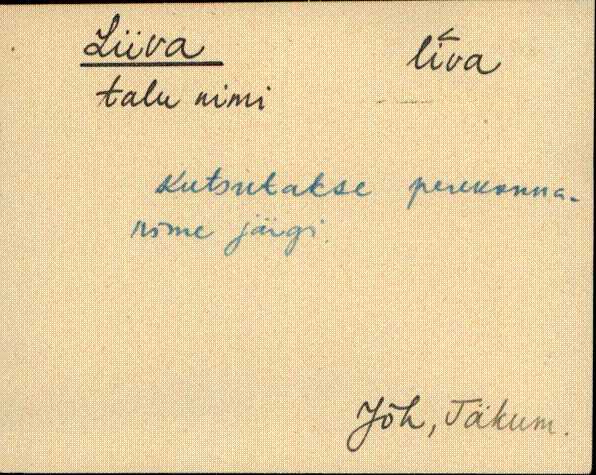 Liiva líva
talu nimi
Kutsutakse perekonna-
nime järgi.
Jõh, Täkum.